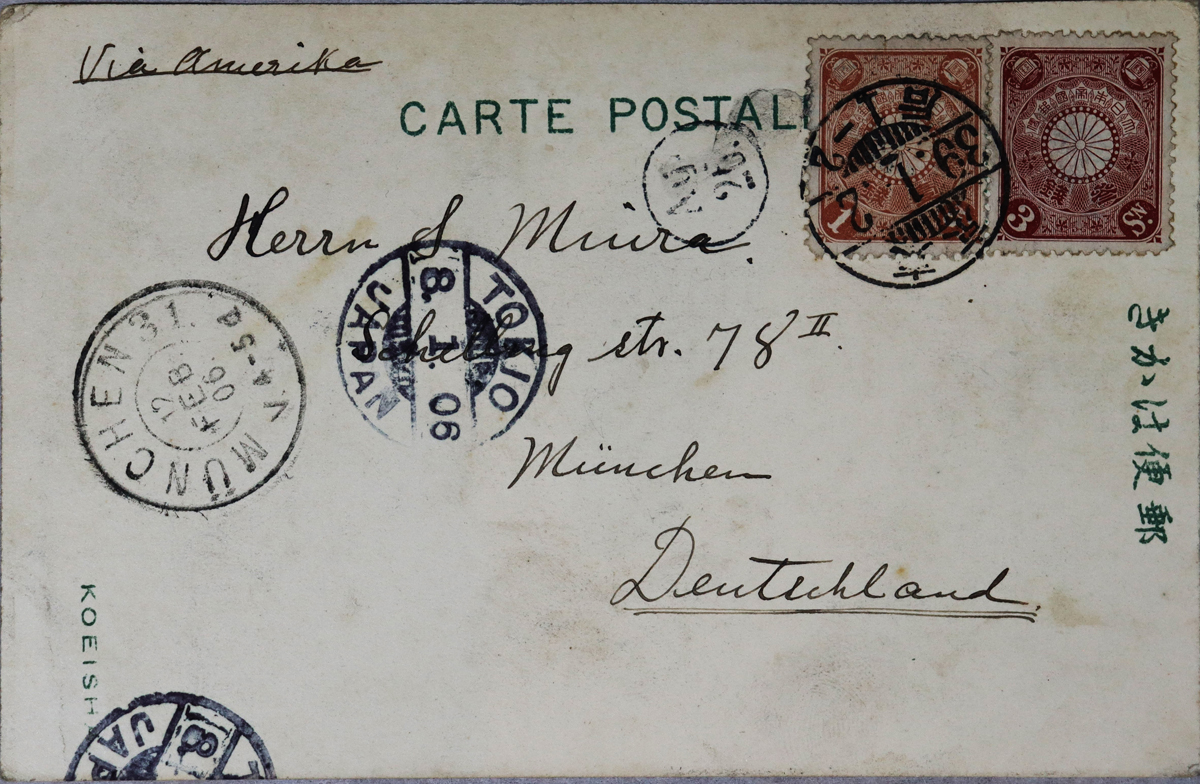 Via Amerika
CARTE POSTAL
Herrn S. Miura.
Schelling str. 78 II
München
Deutschland.
きかは便郵
TOKIO
8. 1. 06
JAPAN
MÜNCHEN 31.
12
FEB.
06.
39
1
2
1
3
SN.
KOEISH
JAP
8